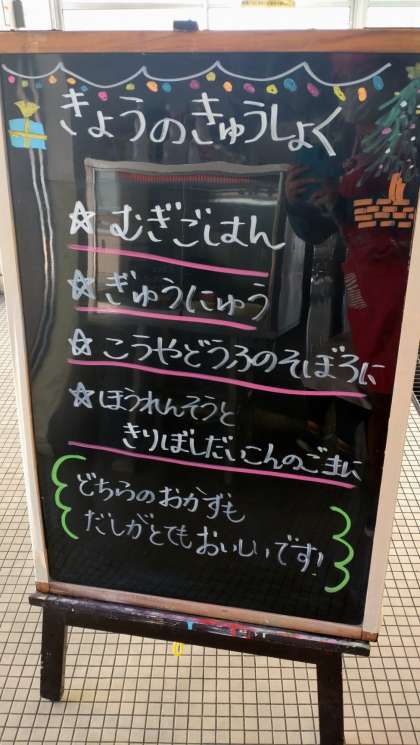 きょうのきゅうしょく
☆むぎごはん
☆ぎゅうにゅう
☆こうやどうふのそぼろに
☆ほうれんそうと
きりぼしだいこんのごまに
どちらのおかずも
だしがとてもおいしいです!